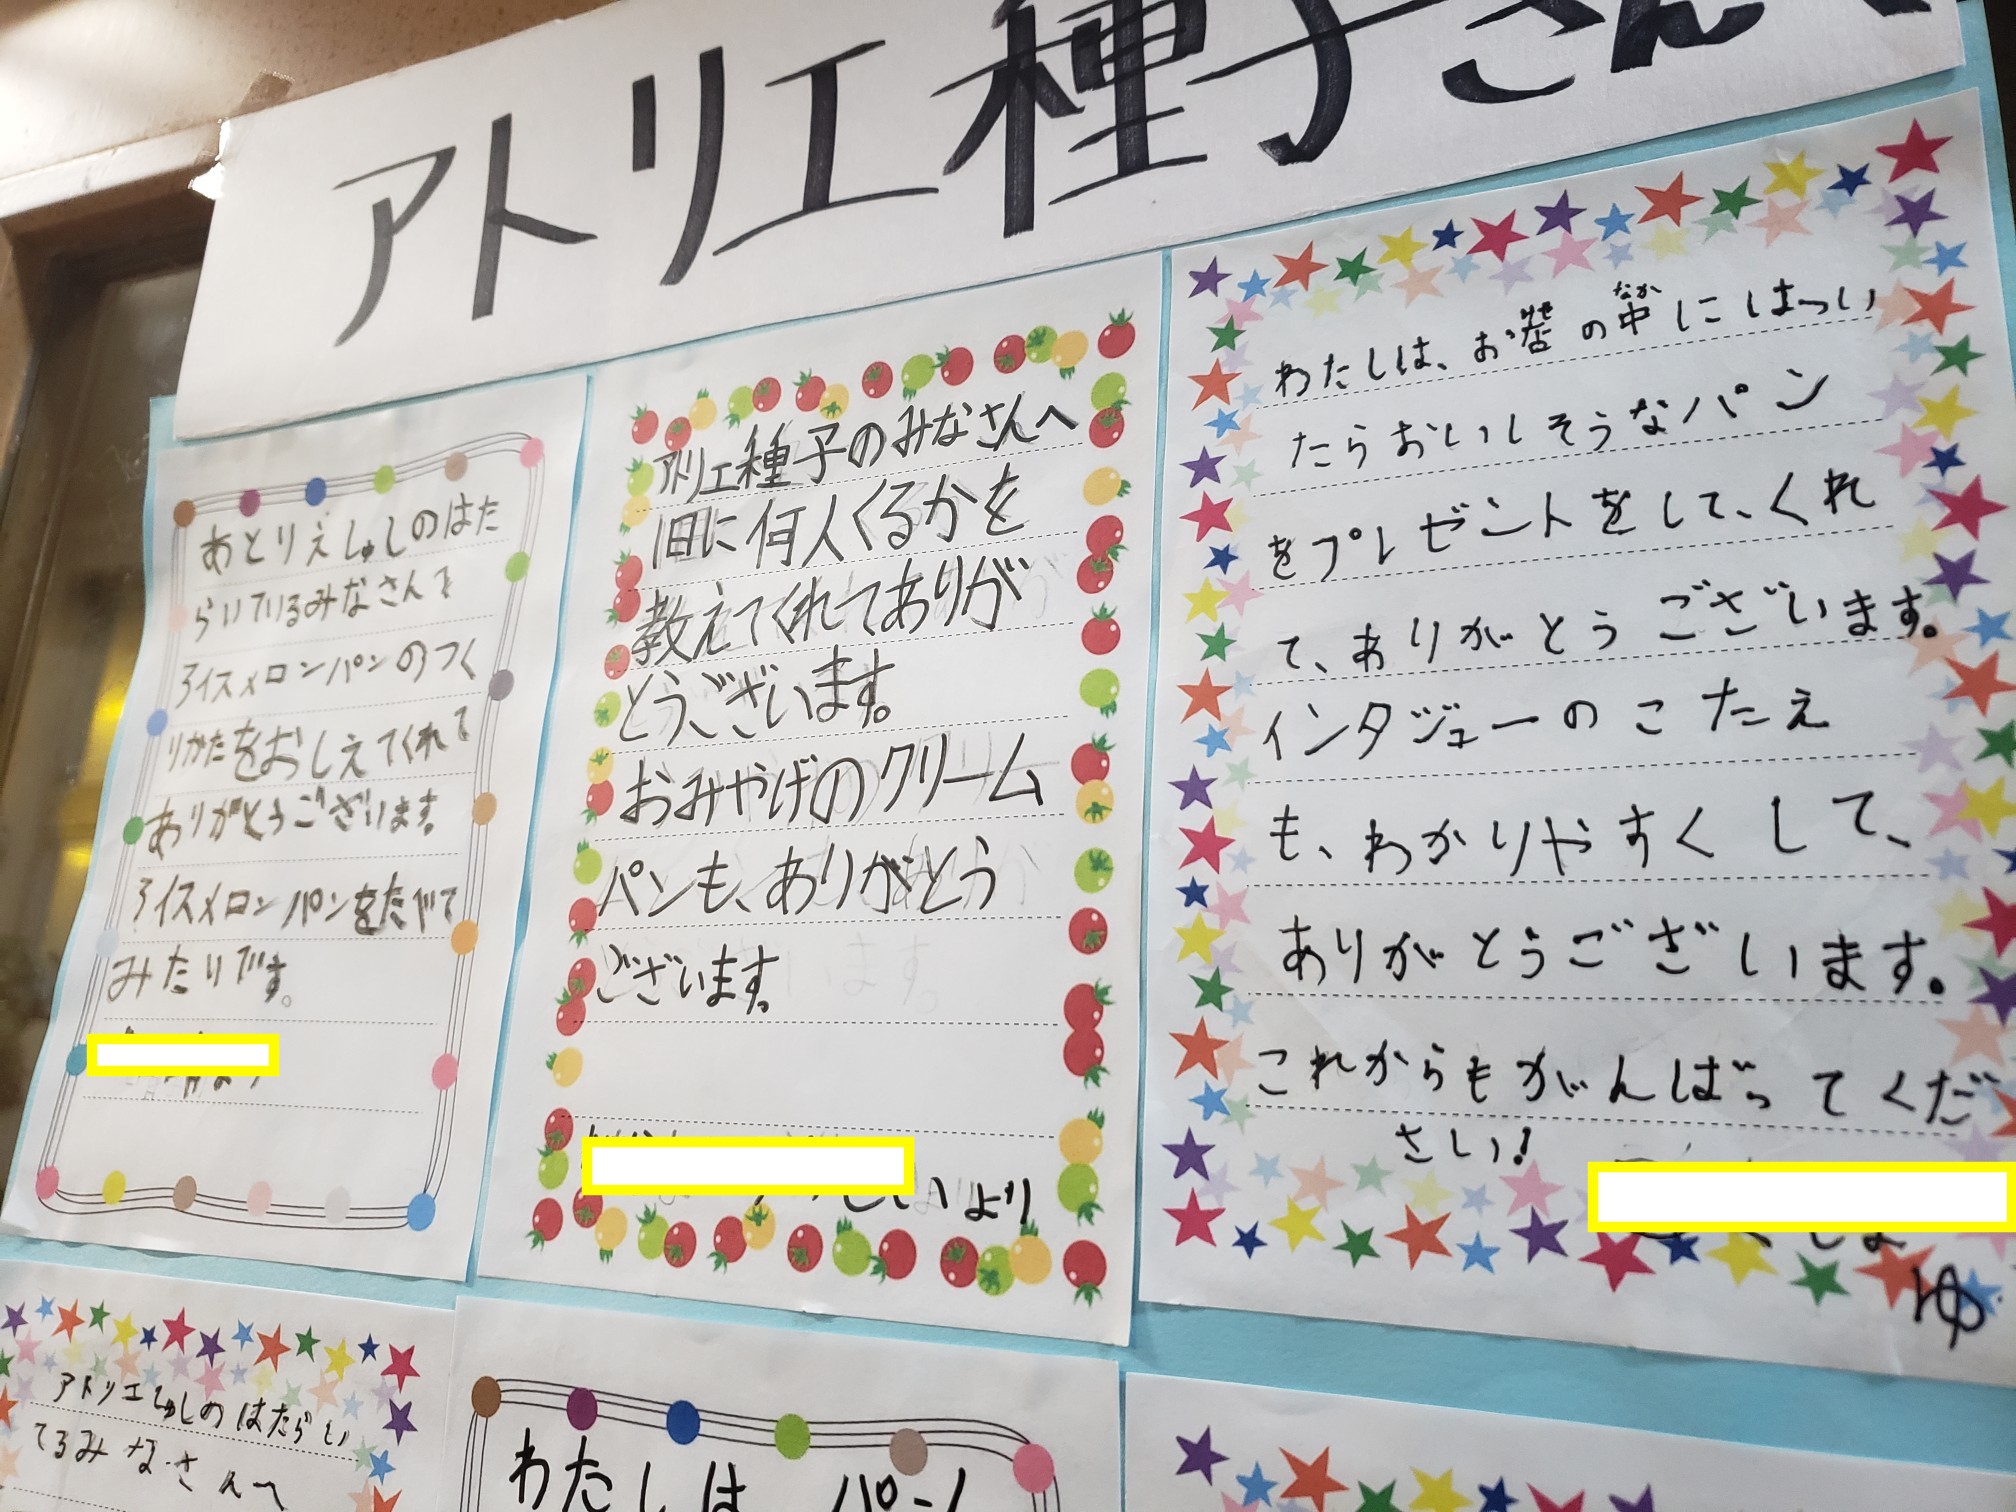 アトリエ種子さんへ
あとりえしゅしのはた
らいているみなさんで
アイスメロンパンのつく
りかたをおしえてくれて
ありがとうございます。
アイスメロンパンをたべて
みたいです。
アトリエ種子のみなさんへ
1日に何人くるかを
教えてくれてありが
とうございます。
おみやげのクリーム
パンも、ありがとう
ございます。
より
わたしは、お店の中にはっい
みせ なか
たらおいしそうなパン
をプレゼントをして、くれ
て、ありがとうございます。
インタビューのこたえ
も、わかりやすくして、
ありがとうございます。
これからもがんばってくだ
さい!
ゆ
アトリエしゅしのはたらい
てるみなさんへ
わたしは パン